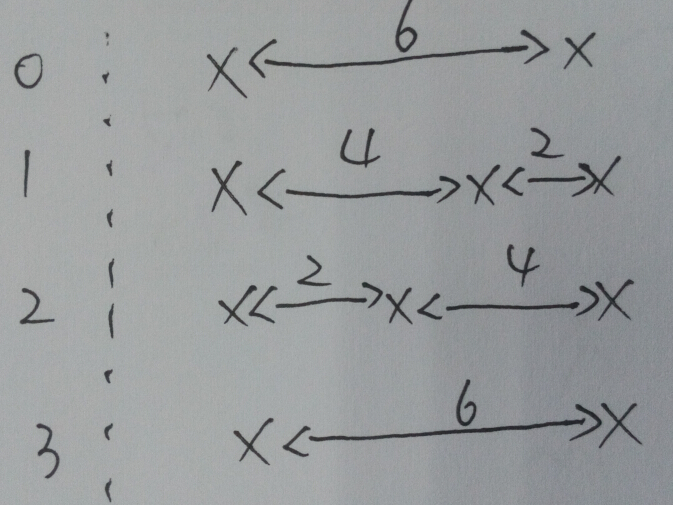 0 X 6 X
1 X 4 X 2 X
2 X 2 X 4 X
3 X 6 X